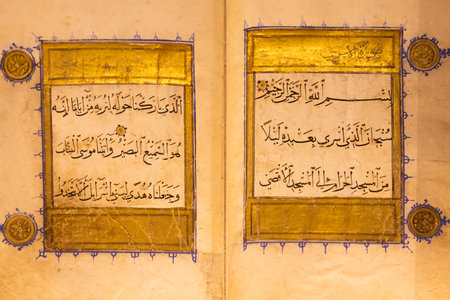 بسم الله الرحمن الرحيم
سبحان الذي اسرى بعبده ليلا
من المسجد الحرام الى المسجد الاقصى
الذي باركنا حوله لنريه من اياتنا انه
هو السميع البصير واتينا موسى الكتاب
وجعلناه هدى لبني اسرائيل الا تتخذوا